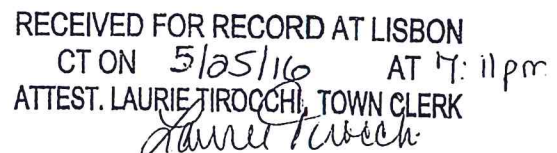 RECEIVED FOR RECORD AT LISBON
CT ON 5/25/16 AT 7:11pm
ATTEST. LAURIE TIROCCHI, TOWN CLERK
Laurie Tirocchi